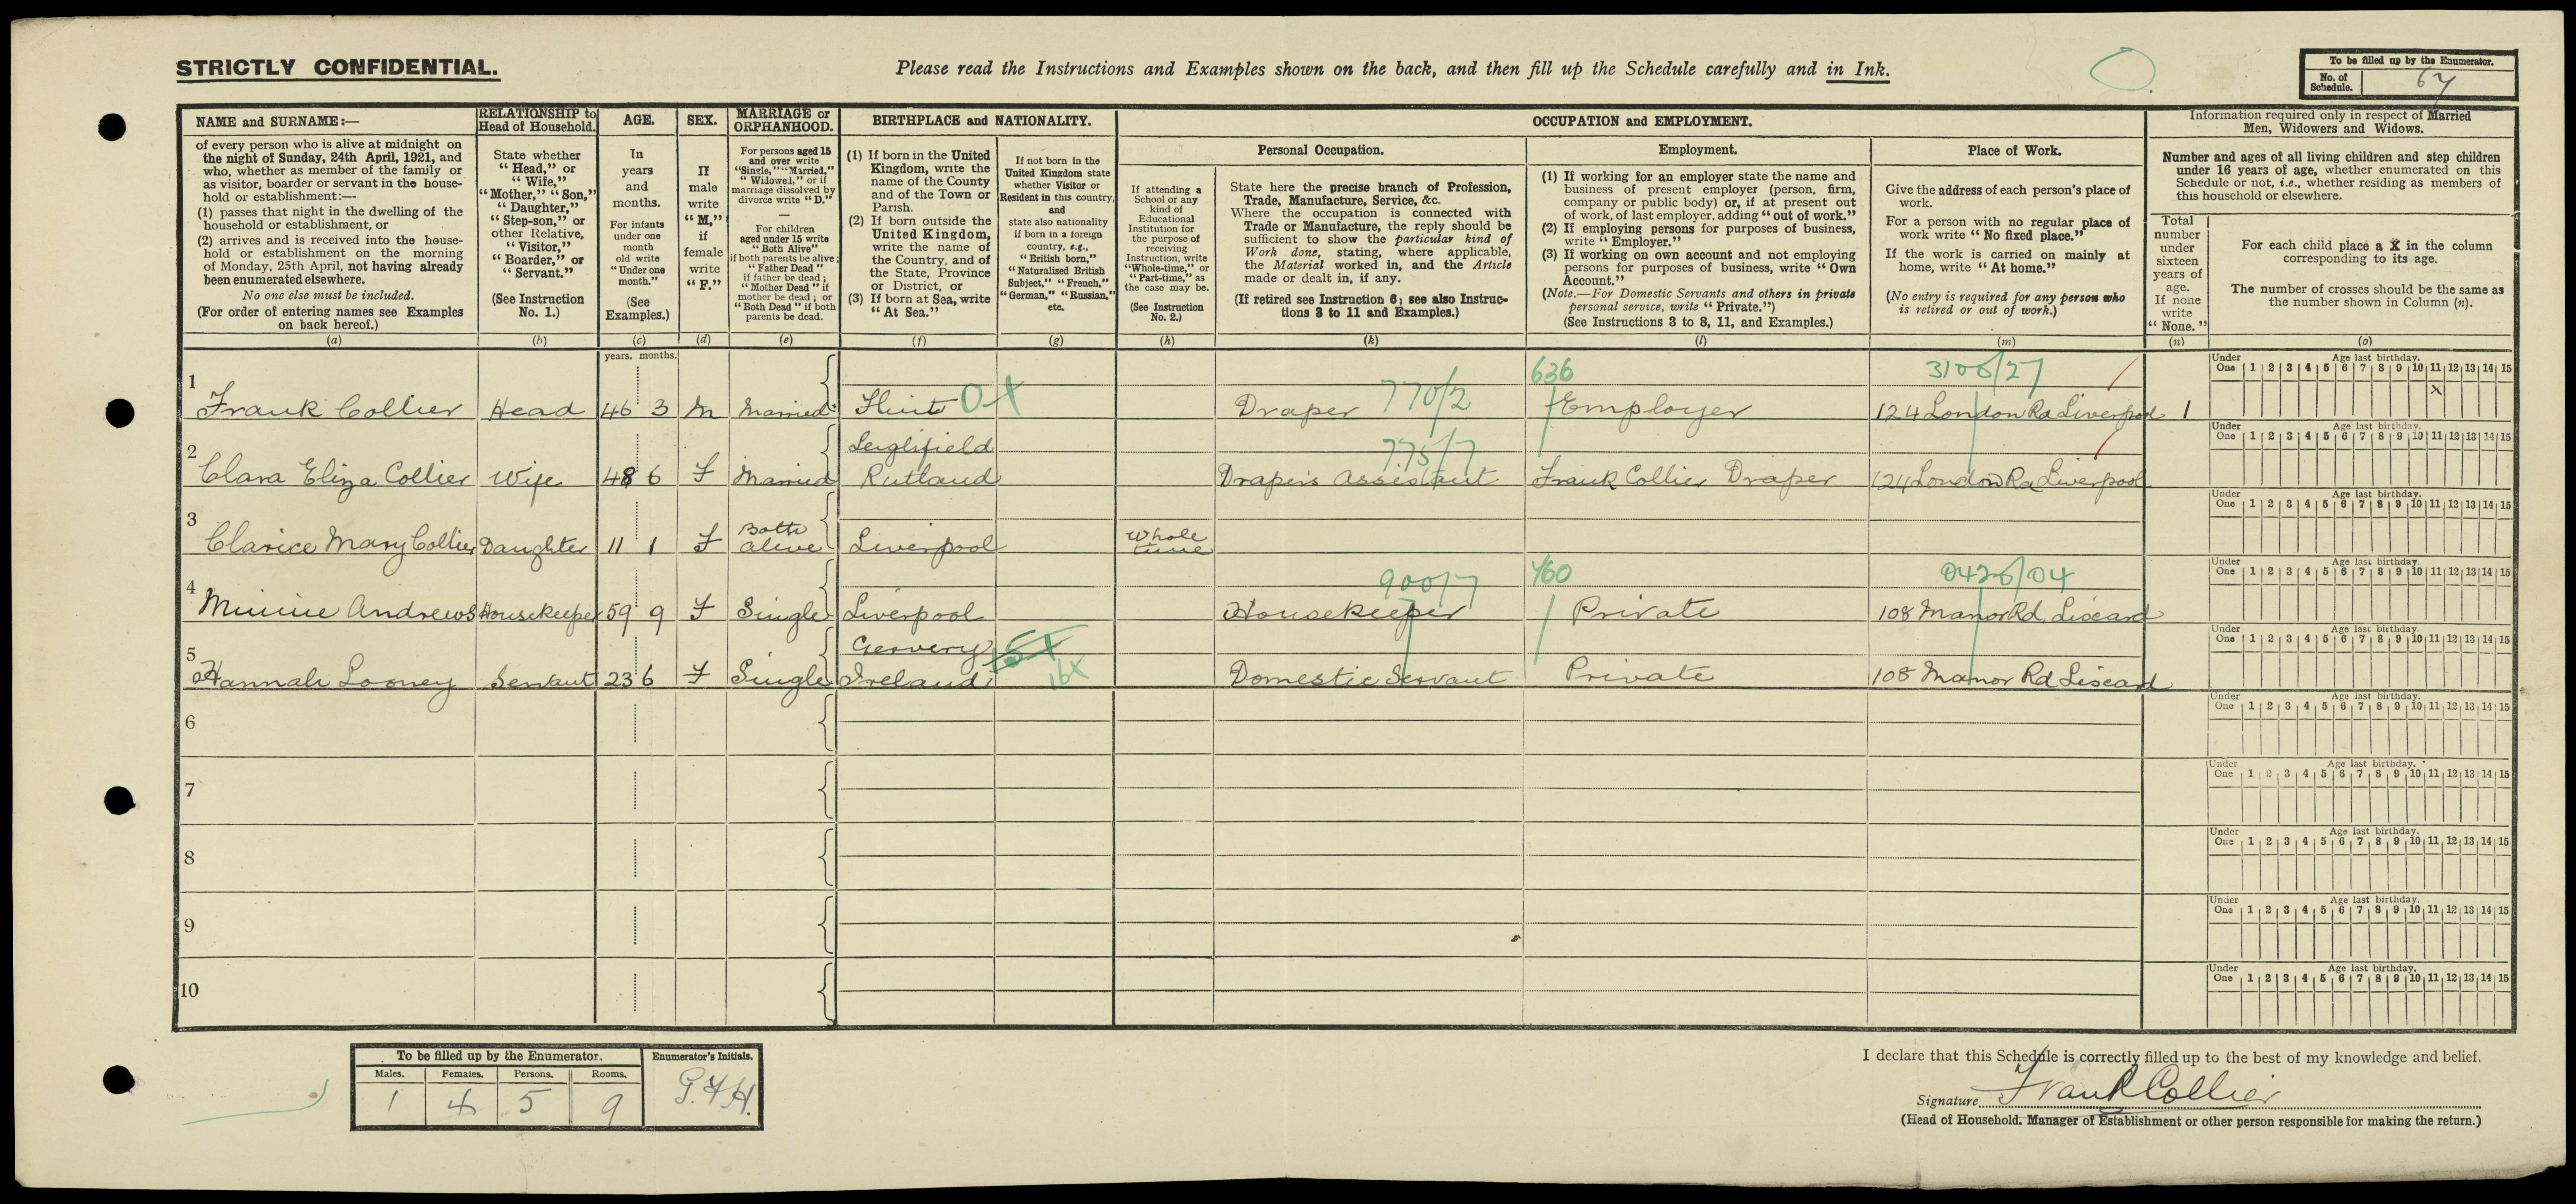 STRICTLY CONFIDENTIAL.
Please read the Instructions and Examples shown on the back, and then fill up the Schedule carefully and in Ink.
To be filled up by the Enumerator.
No. of Schedule. 67
NAME and SURNAME:—
of every person who is alive at midnight on
the night of Sunday, 24th April, 1921, and
who, whether as member of the family or
as visitor, boarder or servant in the house-
hold or establishment:—
(1) passes that night in the dwelling of the
household or establishment, or
(2) arrives and is received into the house-
hold or establishment on the morning
of Monday, 25th April, not having already
been enumerated elsewhere.
No one else must be included.
(For order of entering names see Examples
on back hereof.)
(a)
RELATIONSHIP to
Head of Household.
State whether
"Head," or
"Wife,"
"Mother," "Son,"
"Daughter,"
"Step-son," or
other Relative,
"Visitor,"
"Boarder," or
"Servant."
(See Instruction
No. 1.)
(b)
AGE.
In
years
and
months.
For infants
under one
month
old write
"Under one
month."
(See
Examples.)
(c)
SEX.
If
male
write
"M,"
if
female
write
"F."
(d)
MARRIAGE or
ORPHANHOOD.
For persons aged 15
and over write
"Single," "Married,"
"Widowed," or if
marriage dissolved by
divorce write "D."
—
For children
aged under 15 write
"Both Alive"
if both parents be alive;
"Father Dead"
if father be dead;
"Mother Dead" if
mother be dead; or
"Both Dead" if both
parents be dead.
(e)
BIRTHPLACE and NATIONALITY.
(1) If born in the United
Kingdom, write the
name of the County
and of the Town or
Parish.
(2) If born outside the
United Kingdom,
write the name of
the Country, and of
the State, Province
or District, or
(3) If born at Sea, write
"At Sea."
(f)
If not born in the
United Kingdom state
whether Visitor or
Resident in this country,
and
state also nationality
if born in a foreign
country, e.g.,
"British born,"
"Naturalised British
Subject," "French,"
"German," "Russian,"
etc.
(g)
OCCUPATION and EMPLOYMENT.
If attending a
School or any
kind of
Educational
Institution for
the purpose of
receiving
Instruction, write
"Whole-time," or
"Part-time," as
the case may be.
(See Instruction
No. 2.)
(h)
Personal Occupation.
State here the precise branch of Profession,
Trade, Manufacture, Service, &c.
Where the occupation is connected with
Trade or Manufacture, the reply should be
sufficient to show the particular kind of
Work done, stating, where applicable,
the Material worked in, and the Article
made or dealt in, if any.
(If retired see Instruction 6; see also Instruc-
tions 3 to 11 and Examples.)
(k)
Employment.
(1) If working for an employer state the name and
business of present employer (person, firm,
company or public body) or, if at present out
of work, of last employer, adding "out of work."
(2) If employing persons for purposes of business,
write "Employer."
(3) If working on own account and not employing
persons for purposes of business, write "Own
Account."
(Note.—For Domestic Servants and others in private
personal service, write "Private.")
(See Instructions 3 to 8, 11, and Examples.)
(l)
Place of Work.
Give the address of each person's place of
work.
For a person with no regular place of
work write "No fixed place."
If the work is carried on mainly at
home, write "At home."
(No entry is required for any person who
is retired or out of work.)
(m)
Information required only in respect of Married
Men, Widowers and Widows.
Number and ages of all living children and step children
under 16 years of age, whether enumerated on this
Schedule or not, i.e., whether residing as members of
this household or elsewhere.
Total
number
under
sixteen
years of
age.
If none
write
"None."
(n)
For each child place a X in the column
corresponding to its age.
The number of crosses should be the same as
the number shown in Column (n).
(o)
years. months.
1 Frank Collier Head 46 3 M Married Flint OX Draper 770/2 636 Employer 3106/27 124 London Rd Liverpool 1 X
Under One Age last birthday. 1 2 3 4 5 6 7 8 9 10 11 12 13 14 15
2 Clara Eliza Collier Wife 48 6 F Married Rutland Draper's Assistant 775/7 Frank Collier Draper 124 London Rd Liverpool
Under One Age last birthday. 1 2 3 4 5 6 7 8 9 10 11 12 13 14 15
3 Clarice Mary Collier Daughter 11 1 F Both alive Liverpool Whole time
Under One Age last birthday. 1 2 3 4 5 6 7 8 9 10 11 12 13 14 15
4 Minnie Andrews Housekeeper 59 9 F Single Liverpool Housekeeper 900/7 760 Private 0426/04 108 Manor Rd Liscard
Under One Age last birthday. 1 2 3 4 5 6 7 8 9 10 11 12 13 14 15
5 Hannah Looney Servant 23 6 F Single Ireland 16X Domestic Servant Private 108 Manor Rd Liscard
Under One Age last birthday. 1 2 3 4 5 6 7 8 9 10 11 12 13 14 15
6
Under One Age last birthday. 1 2 3 4 5 6 7 8 9 10 11 12 13 14 15
7
Under One Age last birthday. 1 2 3 4 5 6 7 8 9 10 11 12 13 14 15
8
Under One Age last birthday. 1 2 3 4 5 6 7 8 9 10 11 12 13 14 15
9
Under One Age last birthday. 1 2 3 4 5 6 7 8 9 10 11 12 13 14 15
10
Under One Age last birthday. 1 2 3 4 5 6 7 8 9 10 11 12 13 14 15
To be filled up by the Enumerator.
Males. Females. Persons. Rooms.
1 4 5 9
Enumerator's Initials.
G.F.H.
I declare that this Schedule is correctly filled up to the best of my knowledge and belief.
Signature Frank Collier
(Head of Household, Manager of Establishment or other person responsible for making the return.)